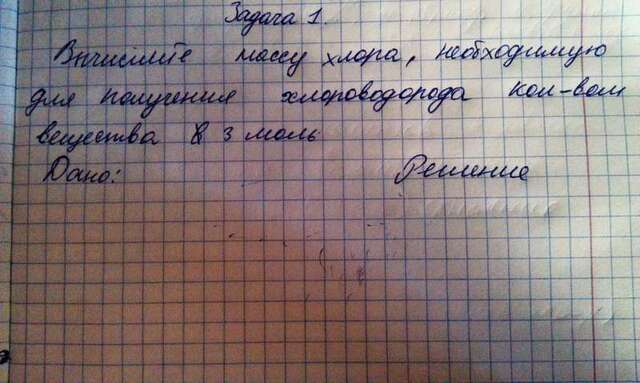 Задача 1.
Вычислите массу хлора, необходимую
для получения хлороводорода кол-вом
вещества 3 моль
Дано: Решение